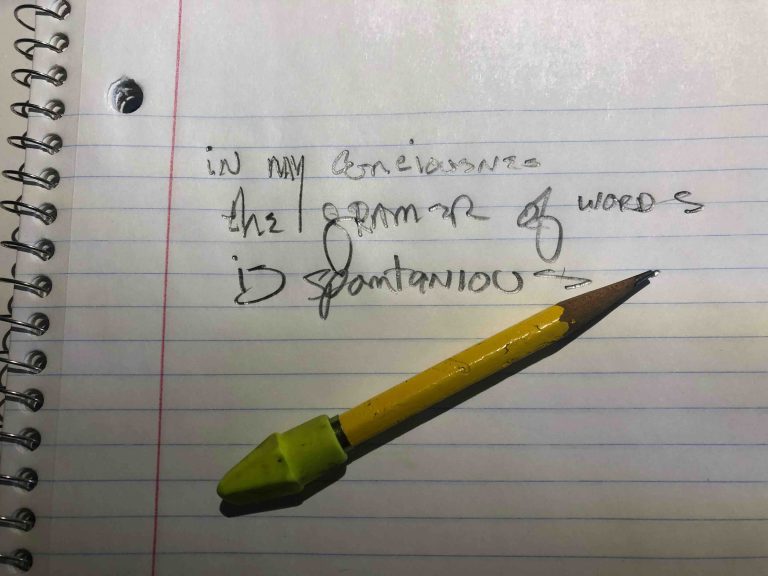 in my conciousnes
the gramer of words
is spontanious